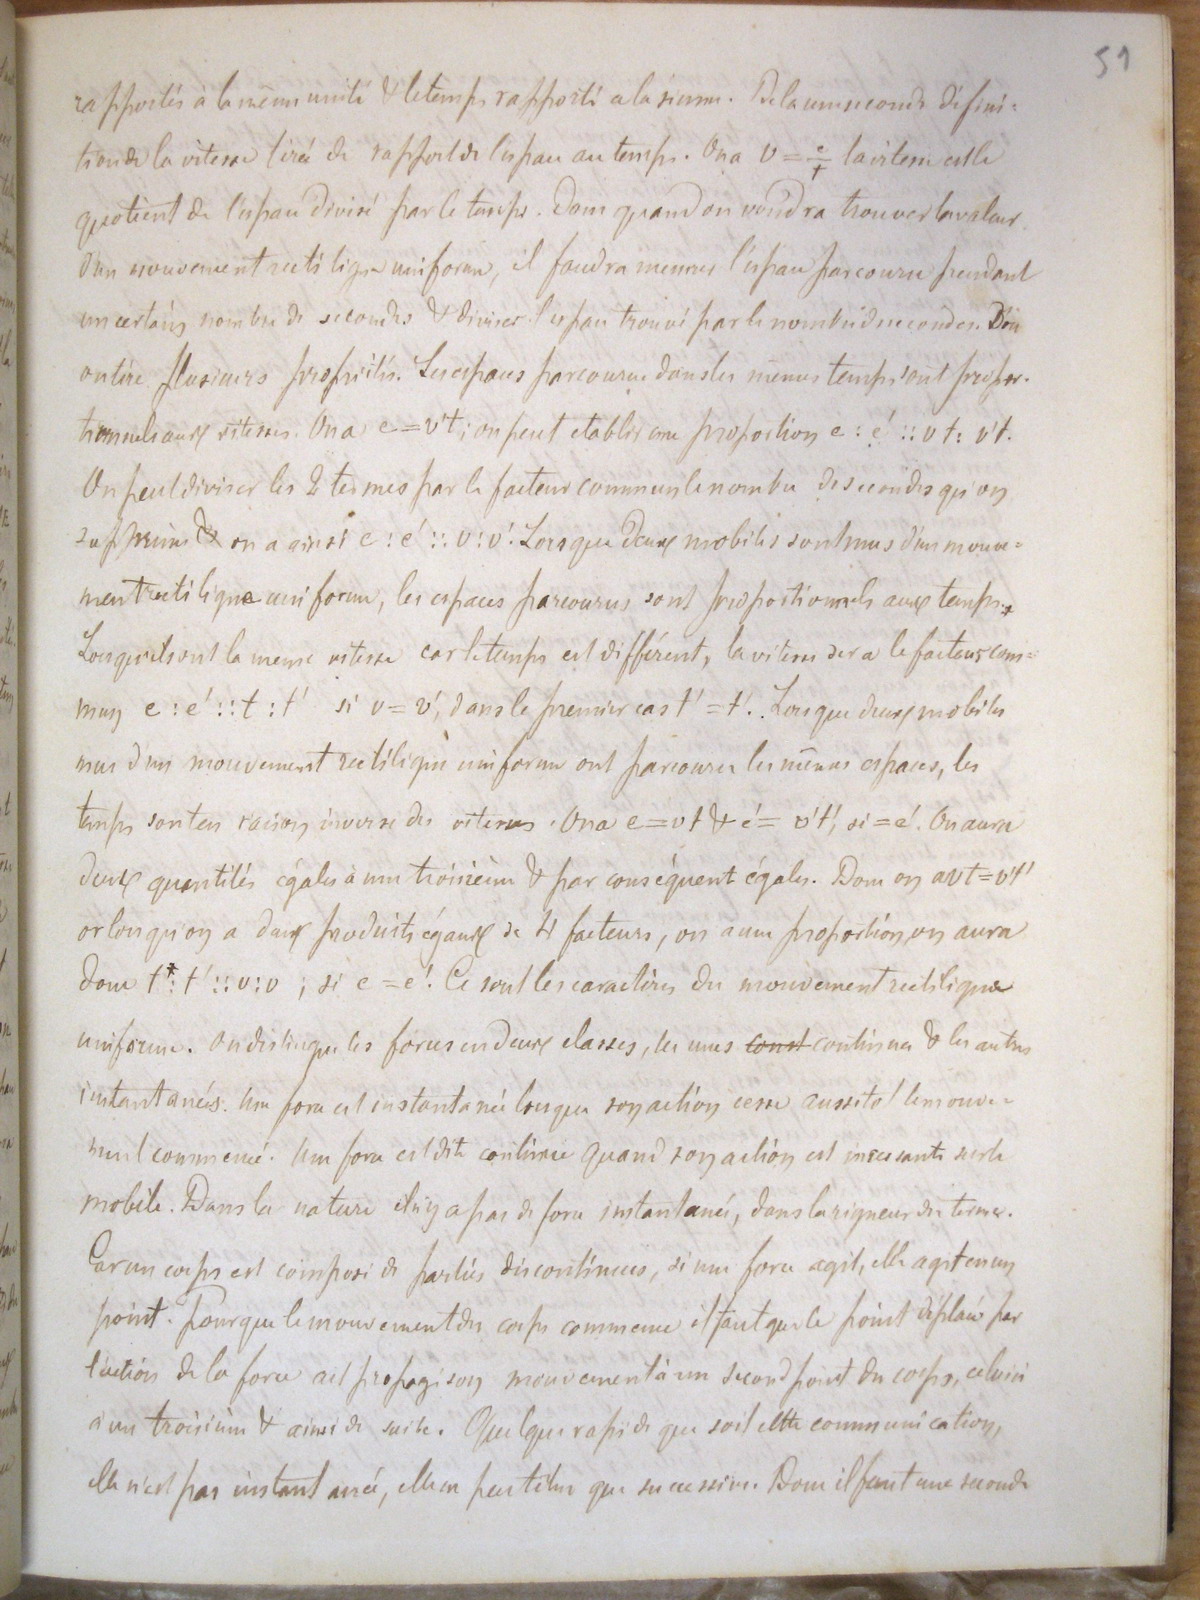 51
rapportés à la même unité & le temps rapporté a la sienne. De la une seconde défini=
tion de la vitesse tirée de rapport de l'espace au temps. On a v = e/t la vitesse est le
quotient de l'espace divisé par le temps. Donc quand on voudra trouver la valeur
d'un mouvement rectiligne uniforme, il faudra mesurer l'espace parcouru pendant
un certain nombre de secondes & diviser l'espace trouvé par le nombre de secondes. D'où
on tire plusieurs propriétés. Les espaces parcourus dans les mêmes temps sont propor-
tionnels aux vitesses. On a e = v't; on peut etablir une proportion e : e' :: vt : v't.
On peut diviser les 2 termes par le facteur commun le nombre de secondes qu'on
supprime & on a ainsi e : e' :: v : v'. Lorsque deux mobiles sont mus d'un mouve=
ment rectiligne uniforme, les espaces parcourus sont proportionnels aux temps.
Lorsqu'ils ont la meme vitesse car le temps est différent, la vitesse sera le facteur com=
mun e : e' :: t : t' si v = v', dans le premier cas t' = t'. Lorsque deux mobiles
mus d'un mouvement rectiligne uniforme ont parcouru les mêmes espaces, les
temps sont en raison inverse des vitesses. On a e = vt & e' = v't', si = e'. On aura
deux quantités égales à une troisième & par conséquent égales. Donc on a vt = v't'
or lorsqu'on a deux produits égaux de 4 facteurs, on a une proportion, on aura
donc t : t' :: v : v ; si e = e'. Ce sont les caractères du mouvement rectiligne
uniforme. On distingue les forces en deux classes, les unes const continues & les autres
instantanées. Une force est instantanée lorsque son action cesse aussitôt le mouve=
ment commencé. Une force est dite continue quand son action est incessante sur le
mobile. Dans la nature il n'y a pas de force instantanée, dans la rigueur du terme.
Car un corps est composé de parties discontinues, si une force agit, elle agit en un
point. Pour que le mouvement du corps commence il faut que le point déplacé par
l'action de la force ait propagé son mouvement à un second point du corps, celui ci
à un troisième & ainsi de suite. Quelque rapide que soit cette communication,
elle n'est pas instantanée, elle ne peut être que successive. Donc il faut une seconde